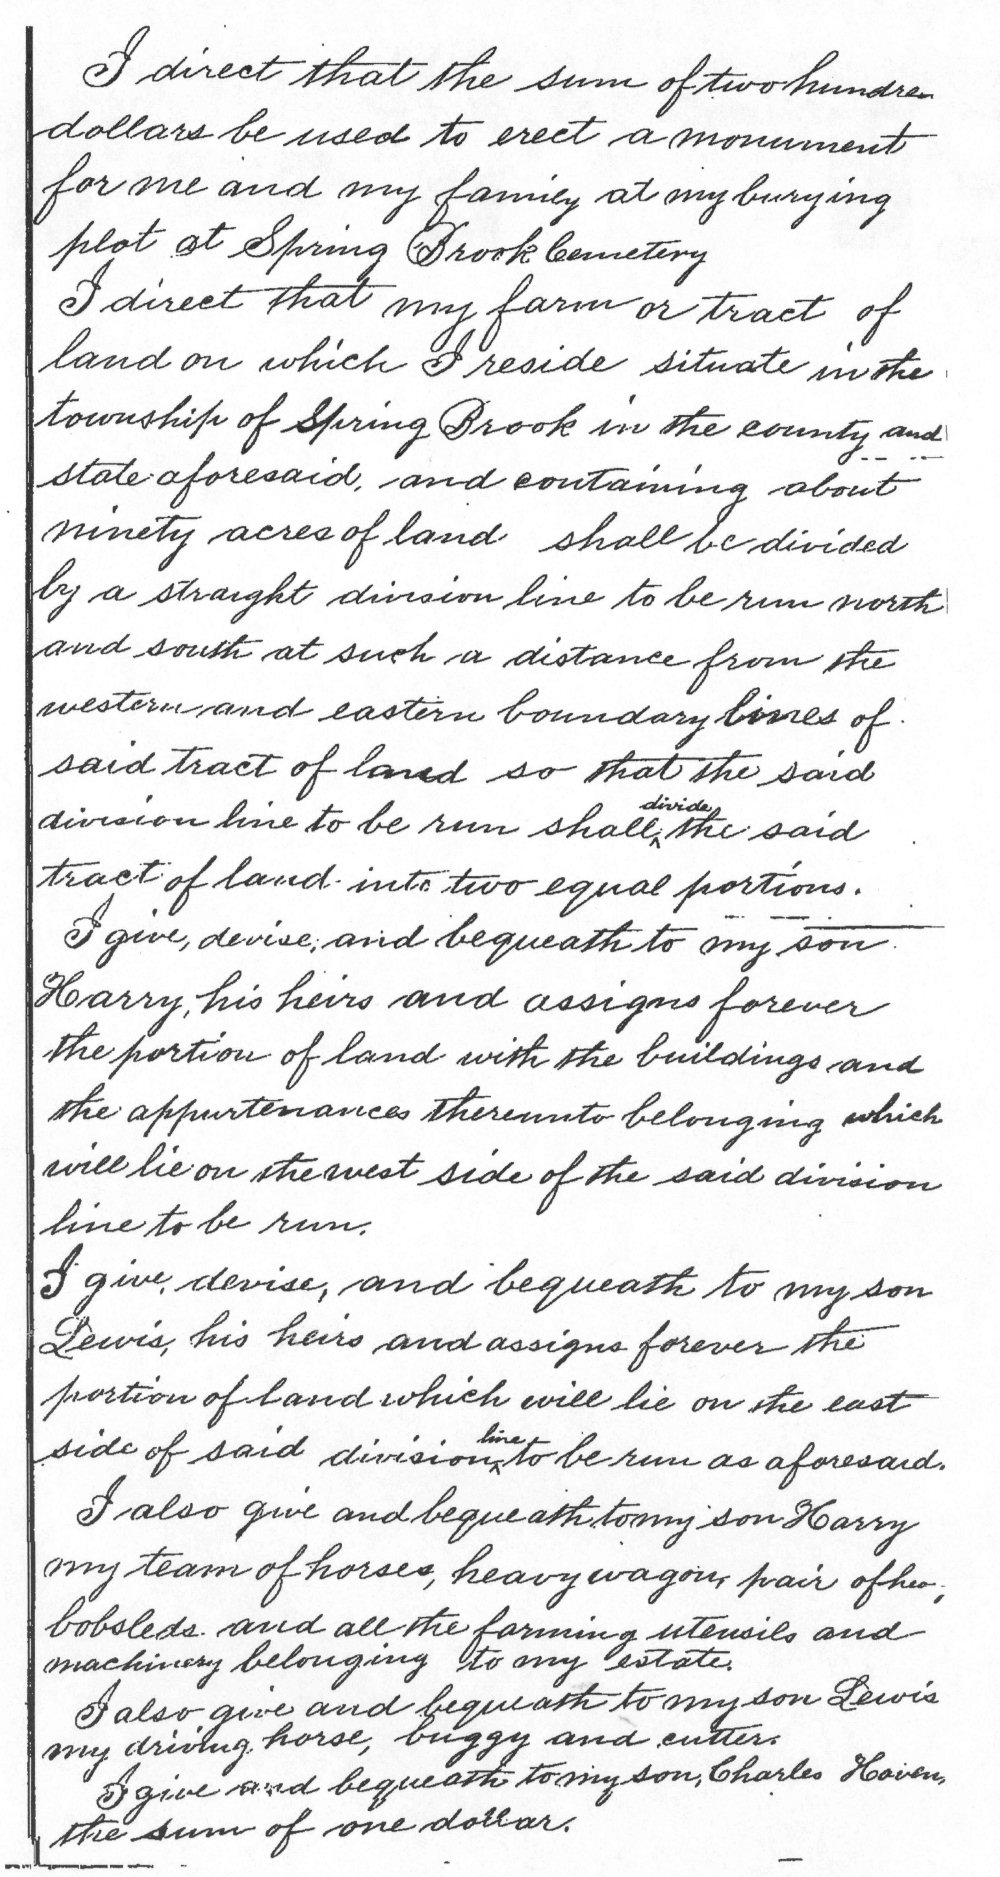 I direct that the sum of two hundre
dollars be used to erect a monument
for me and my family at my burying
plot at Spring Brook Cemetery
I direct that my farm or tract of
land on which I reside situate in the
township of Spring Brook in the county and
state aforesaid, and containing about
ninety acres of land shall be divided
by a straight division line to be run north
and south at such a distance from the
western and eastern boundary lines of
said tract of land so that the said
division line to be run shall divide the said
tract of land into two equal portions.
I give, devise, and bequeath to my son
Harry, his heirs and assigns forever
the portion of land with the buildings and
the appurtenances thereunto belonging which
will lie on the west side of the said division
line to be run.
I give, devise, and bequeath to my son
Lewis, his heirs and assigns forever the
portion of land which will lie on the east
side of said division line to be run as aforesaid.
I also give and bequeath to my son Harry
my team of horses, heavy wagon, pair of
bobsleds and all the farming utensils and
machinery belonging to my estate.
I also give and bequeath to my son Lewis
my driving horse, buggy and cutter.
I give and bequeath to my son, Charles Haven,
the sum of one dollar.